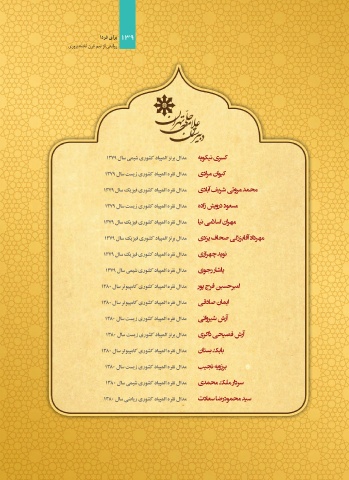 ۱۳۹
برای فردا
روایتی از نیم قرن نخبه‌پروری
دبیرستان علامه حلی تهران
کسری نیکویه مدال برنز المپیاد کشوری شیمی سال ۱۳۷۹
کیوان مرادی مدال نقره المپیاد کشوری زیست سال ۱۳۷۹
محمد مروتی شریف آبادی مدال نقره المپیاد کشوری فیزیک سال ۱۳۷۹
مسعود درویش زاده مدال نقره المپیاد کشوری زیست سال ۱۳۷۹
مهران اسلامی نیا مدال نقره المپیاد کشوری فیزیک سال ۱۳۷۹
مهرداد آقابزرگی صحاف یزدی مدال برنز المپیاد کشوری فیزیک سال ۱۳۷۹
نوید چهرازی مدال نقره المپیاد کشوری فیزیک سال ۱۳۷۹
یاشار رجوی مدال نقره المپیاد کشوری شیمی سال ۱۳۷۹
امیرحسین فرج پور مدال نقره المپیاد کشوری کامپیوتر سال ۱۳۸۰
ایمان صادقی مدال نقره المپیاد کشوری کامپیوتر سال ۱۳۸۰
آرش شیروانی مدال نقره المپیاد کشوری زیست سال ۱۳۸۰
آرش فصیحی ذاکری مدال برنز المپیاد کشوری زیست سال ۱۳۸۰
بابک بستان مدال نقره المپیاد کشوری کامپیوتر سال ۱۳۸۰
برزویه نجیب مدال نقره المپیاد کشوری زیست سال ۱۳۸۰
سردار ملک محمدی مدال نقره المپیاد کشوری شیمی سال ۱۳۸۰
سید محمودرضا سعادت مدال نقره المپیاد کشوری ریاضی سال ۱۳۸۰